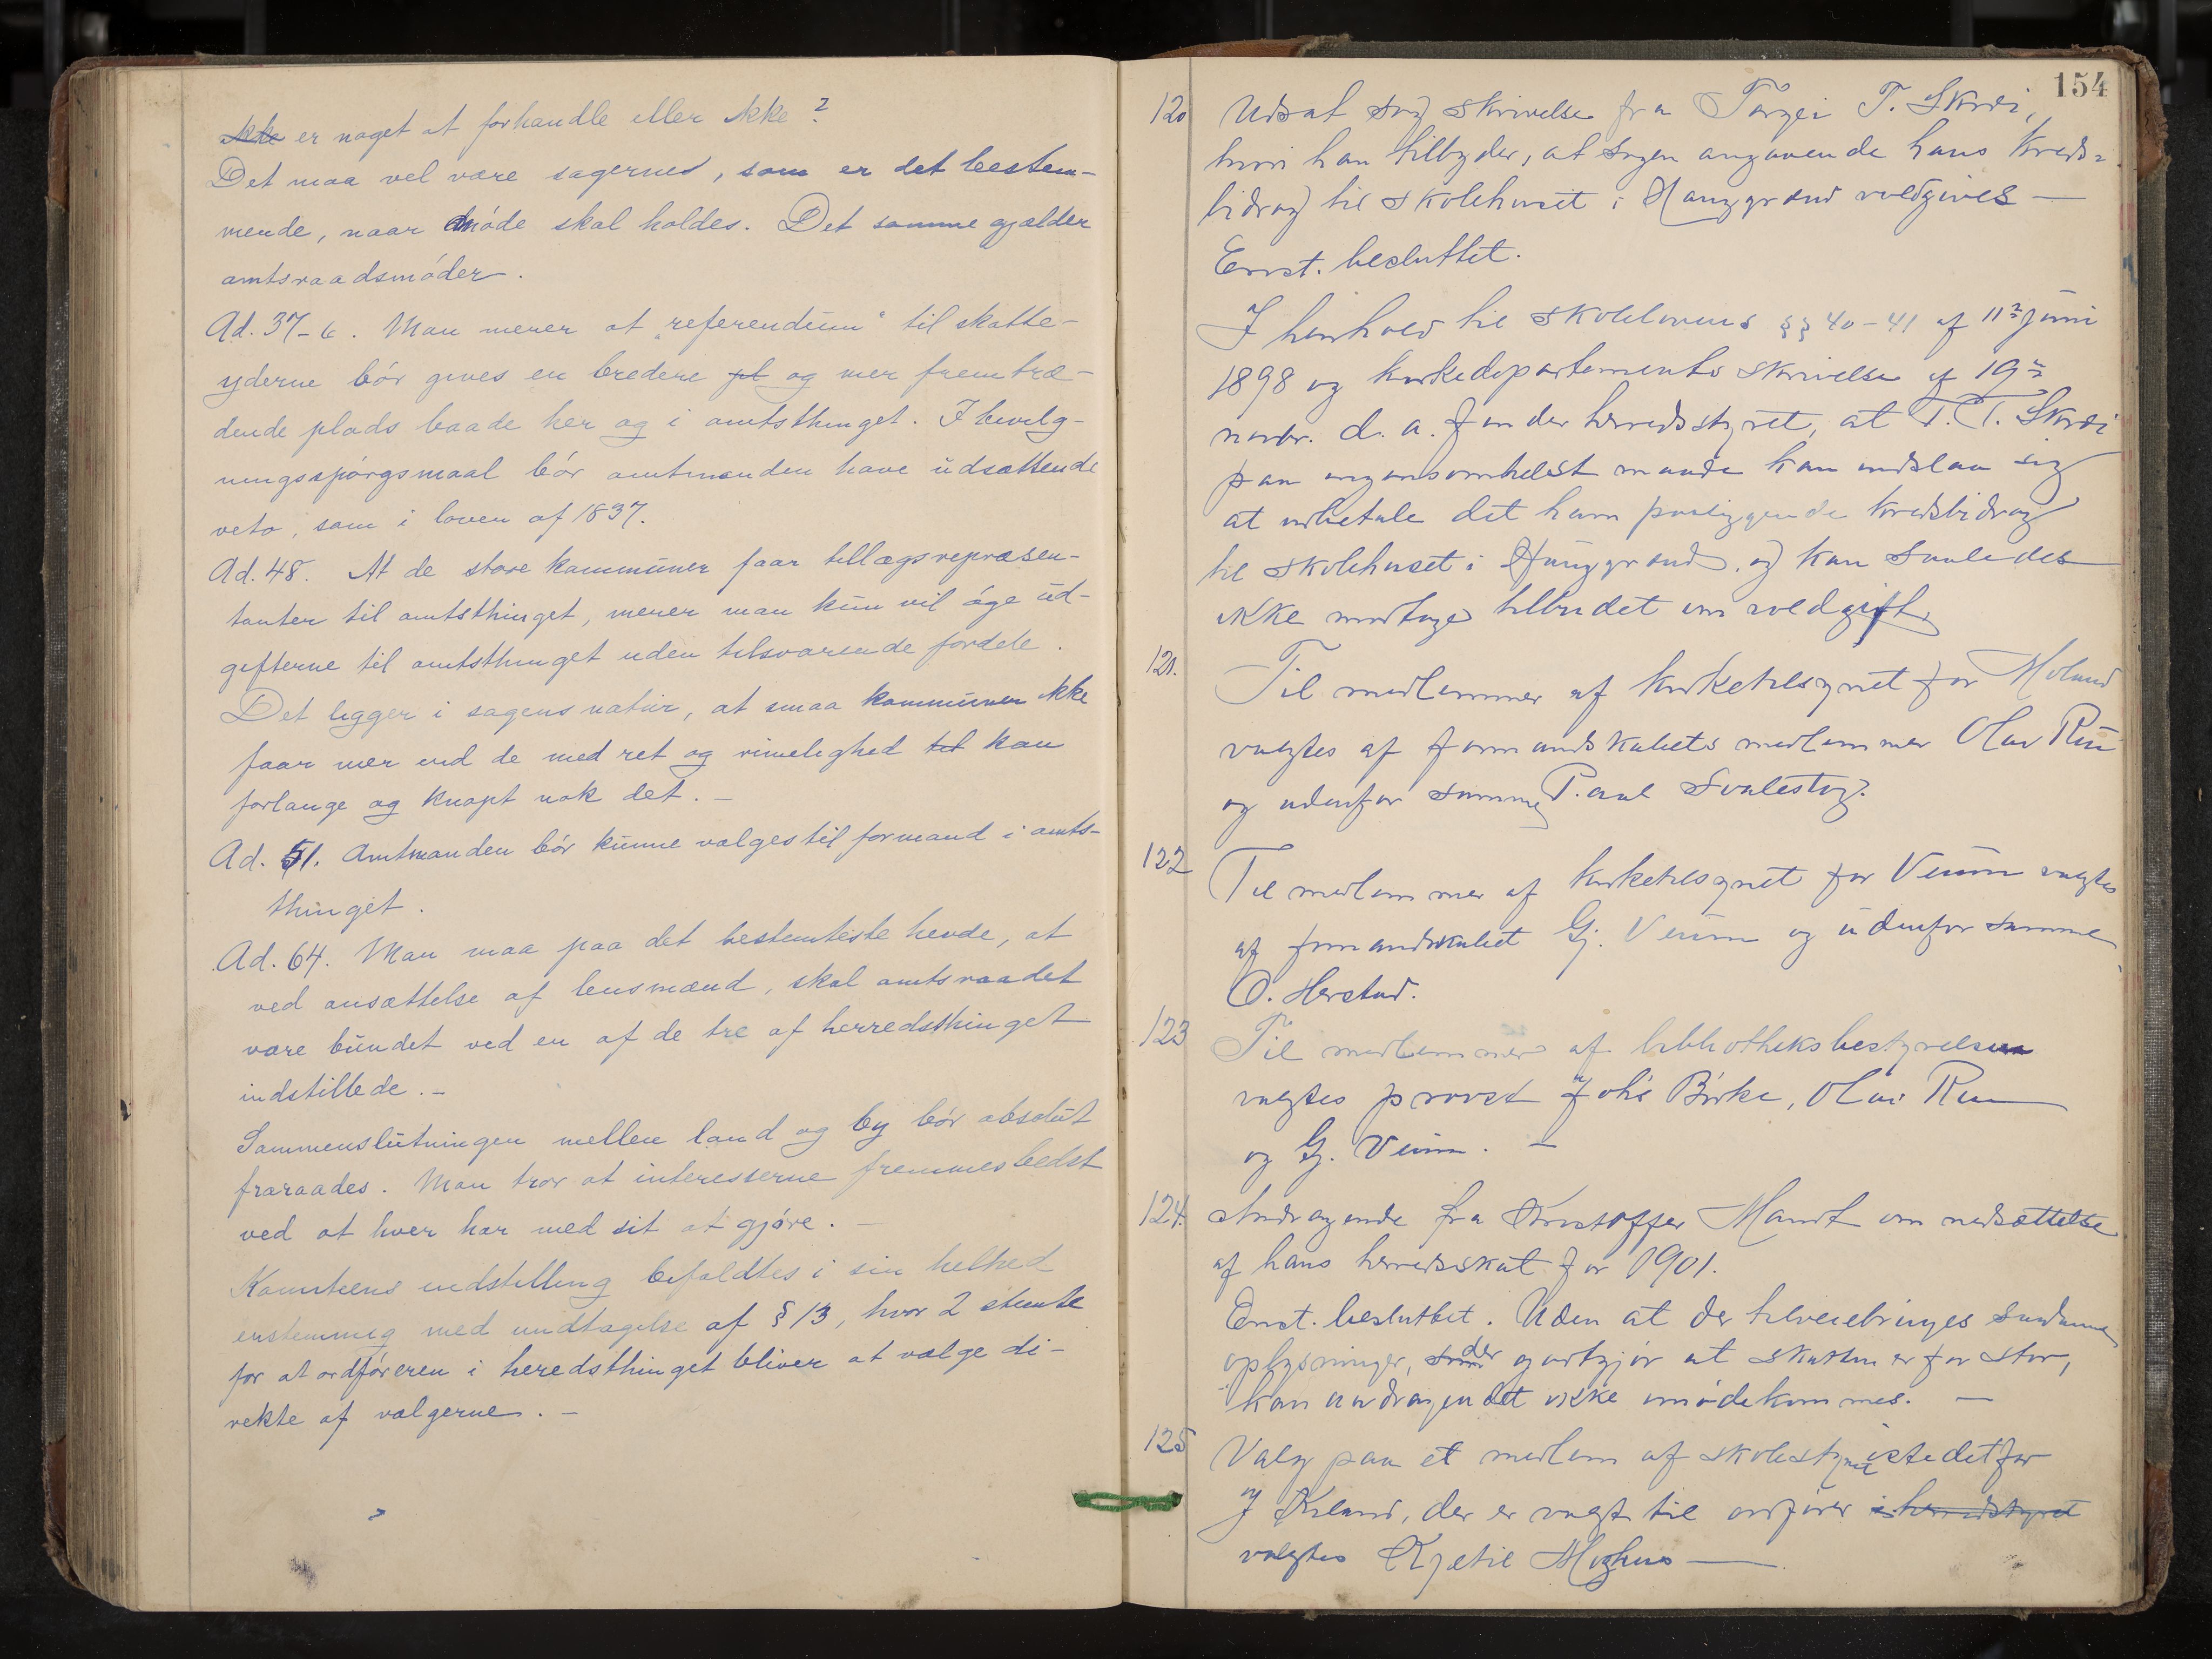 ~~ikke~~ er noget at forhandle eller ikke?
Det maa vel være sagernes, som er det bestem-
mende, naar møde skal holdes. Det samme gjælder
amtsraadsmøder.
Ad. 37-6. Man mener at "referendum" til skatte-
yderne bör gives en bredere ~~pl~~ og mer fremtræ-
dende plads baade her og i amtsthinget. I bevilg-
ningsspörgsmaal bör amtmanden have udsættende
veto, som i loven af 1837.
Ad. 48. At de store kommuner faar tillægsrepræsen-
tanter til amtsthinget, mener man kun vil öge ud-
gifterne til amtsthinget uden tilsvarende fordele.
Det ligger i sagens natur, at smaa kommuner ikke
faar mer end de med ret og rimelighed ~~til~~ kan
forlange og knapt nok det. —
Ad. 51. Amtmanden bör kunne vælges til formand i amts-
thinget.
Ad. 64. Man maa paa det bestemteste hevde, at
ved ansættelse af lensmænd, skal amtsraadet
være bundet ved en af de tre af herredsthinget
indstillede. —
Sammenslutningen mellem land og by bör absolut
fraraades. Man tror at interesserne fremmes bedst
ved at hver har med sit at gjøre. —
Komiteens indstilling bifaldtes i sin helhed
enstemmig med undtagelse af § 13, hvor 2 stemte
for at ordföreren i heredsthinget bliver at vælge di-
rekte af vælgerne. —
154
120 Udsat sag skrivelse fra Torgei T. Skrei,
hvori han tilbyder, at sagen angaaende hans kreds-
bidrag til skolehuset i Hauggrend voldgives —
Enst. besluttet.
I henhold til skolelovens §§ 40-41 af 11te juni
1898 og kirkedepartements skrivelse af 19de
novbr. d. a. finder herredsstyret, at T. T. Skrei
paa ingensomhelst maade kan undslaa sig
at udbetale det ham paaliggende kredsbidrag
til skolehuset i Hauggrend, og kan saaledes
ikke modtage tilbudet om voldgift.
121. Til medlemmer af kirketilsynet for Moland
valgtes af formandskabets medlemmer Olav Rui
og udenfor samme Paul Svalestog.
122 Til medlemmer af kirketilsynet for Veum valgtes
af formandskabet Gj. Veum og udenfor samme
O. Herstad.
123 Til medlemmer af bibliotheksbestyrelsen
valgtes provst Johs Birke, Olav Rui
og Gj. Veum. —
124. Andragende fra Kristoffer Mandt om nedsættelse
af hans herredsskat for 1901.
Enst. besluttet. Uden at der tilveiebringes saadanne
oplysninger, ~~som~~ der godtgjör at skatten er for stor,
kan andragendet ikke imødekommes. —
125 Valg paa et medlem af skolestyret istedetfor
J Kiland, der er valgt til ordfører ~~i herredstyret~~
valgtes Kjetil Moghus —